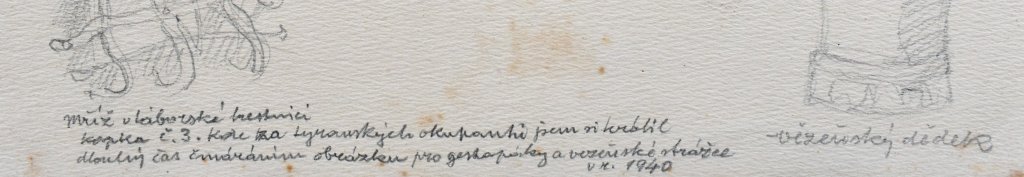 Mříž v táborské trestnici
kopka č. 3. kde za tyranských okupantů jsem si krátil
dlouhý čas čmáráním obrázku pro gestapáky a vezeňské strážce
v r. 1940
vězeňský dědek